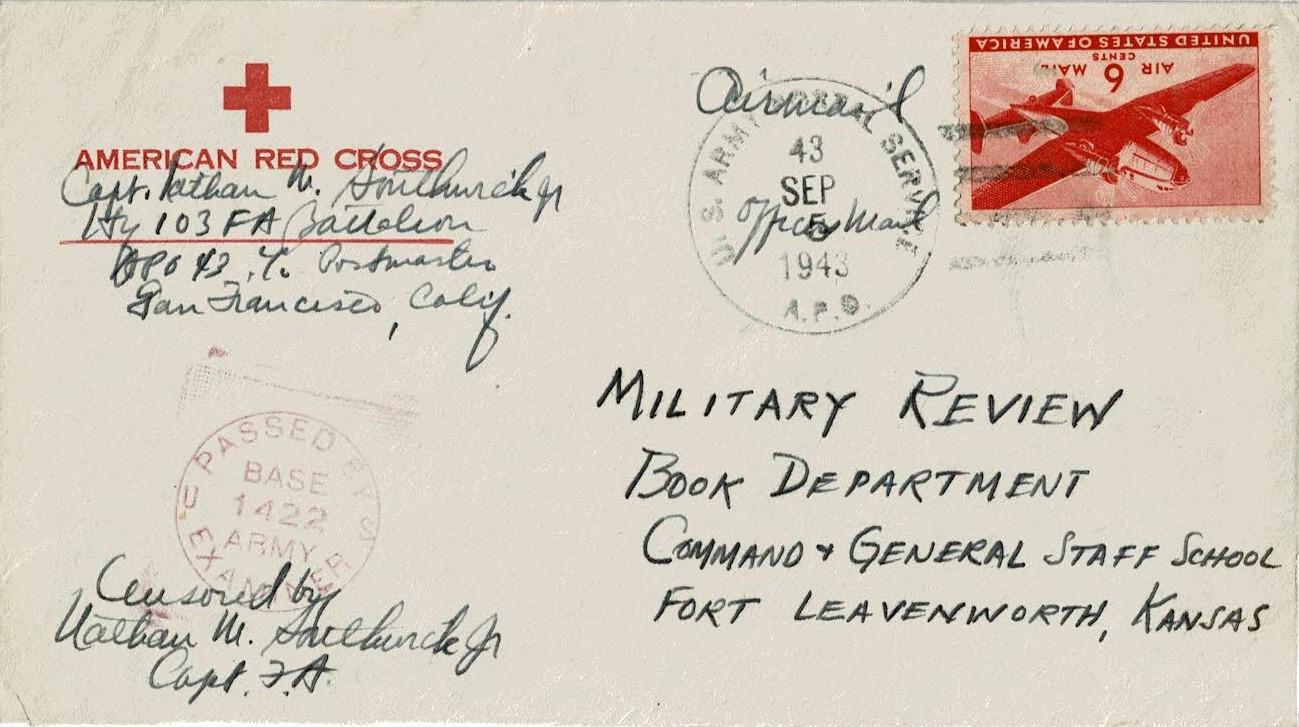 AMERICAN RED CROSS
Capt. Nathan M. Southwick Jr
Hq 103 FA Battalion
APO 43, % Postmaster
San Francisco, Calif.
Airmail
Officers Mail
U.S. ARMY POSTAL SERVICE
43
SEP
5
1943
A.P.O.
UNITED STATES OF AMERICA
CENTS
AIR 6 MAIL
MILITARY REVIEW
BOOK DEPARTMENT
COMMAND & GENERAL STAFF SCHOOL
FORT LEAVENWORTH, KANSAS
PASSED BY
BASE
U 1422 S
ARMY
EXAMINER
Censored by
Nathan M. Southwick Jr
Capt. F.A.